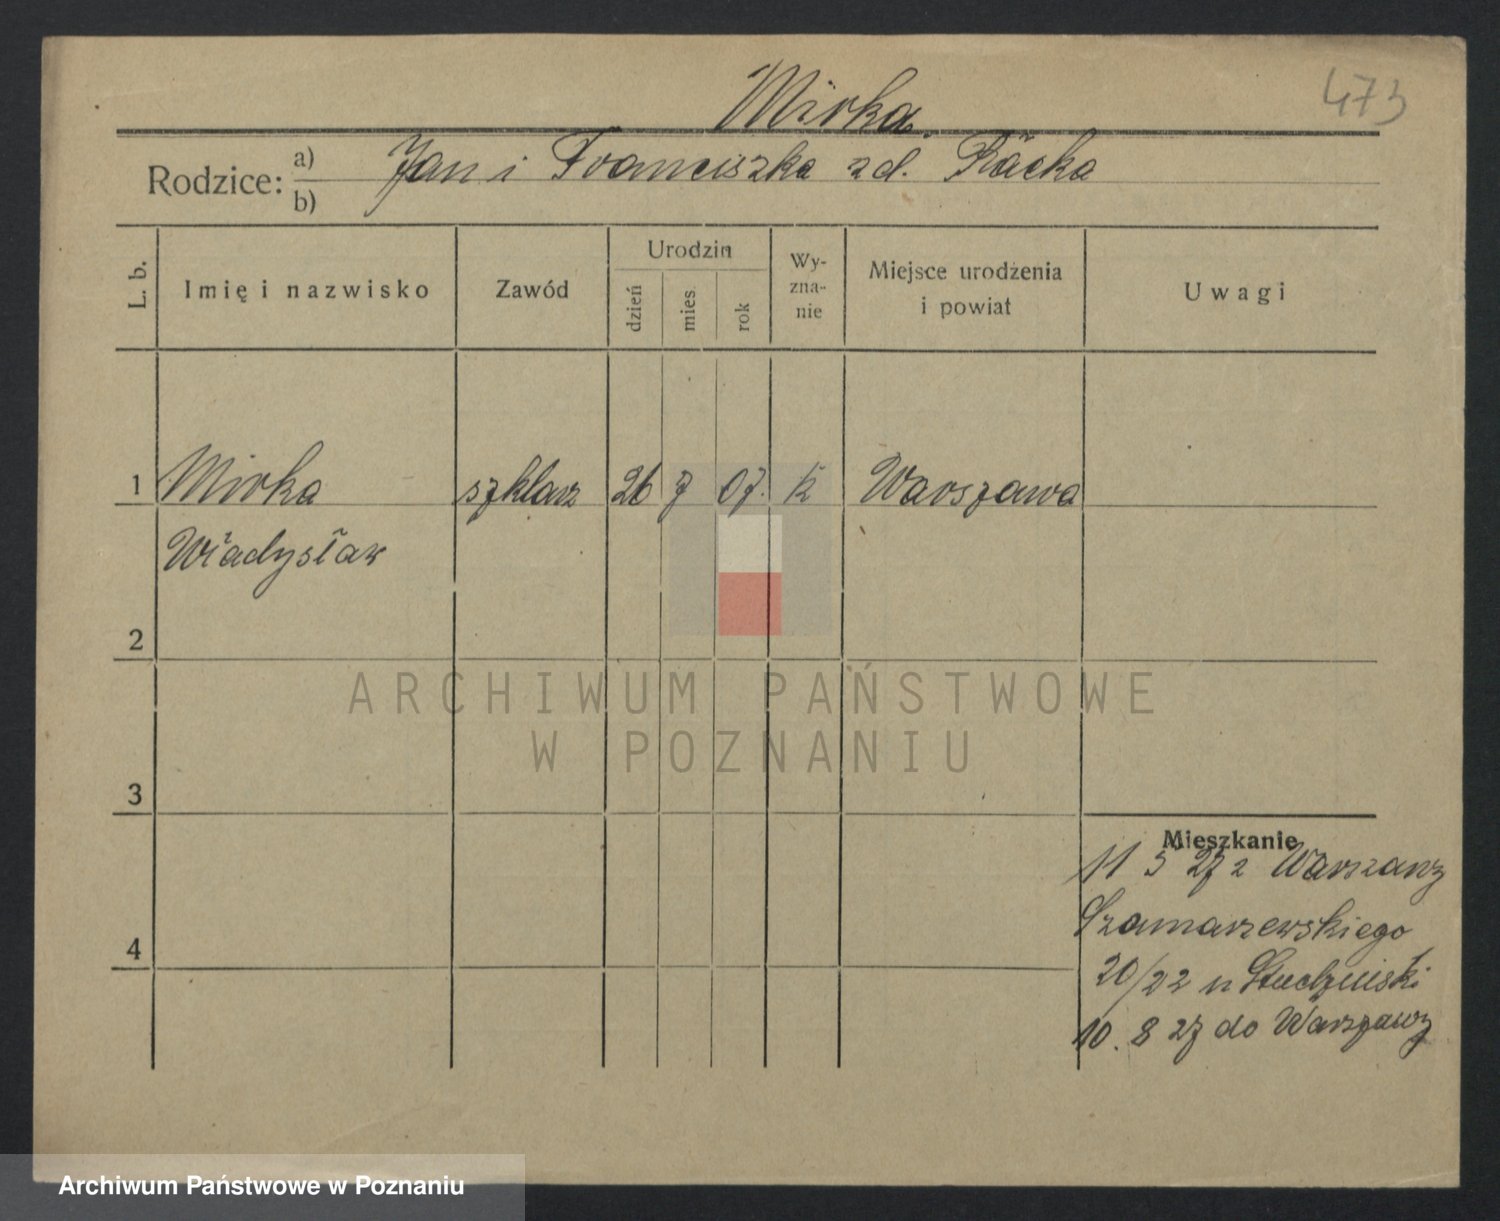 Mirka
473
Rodzice: a) Jan i Franciszka zd. Płacka
b)
L. b. Imię i nazwisko Zawód Urodzin dzień mies. rok Wy-zna-nie Miejsce urodzenia i powiat Uwagi
1 Mirka szklarz 26 7 07. k Warszawa
Władysław
2
ARCHIWUM PAŃSTWOWE
W POZNANIU
3
Mieszkanie
11 5 27 z Warszawy
Szamarzewskiego
20/22 u Studziński
4
10. 8 27 do Warszawy
Archiwum Państwowe w Poznaniu